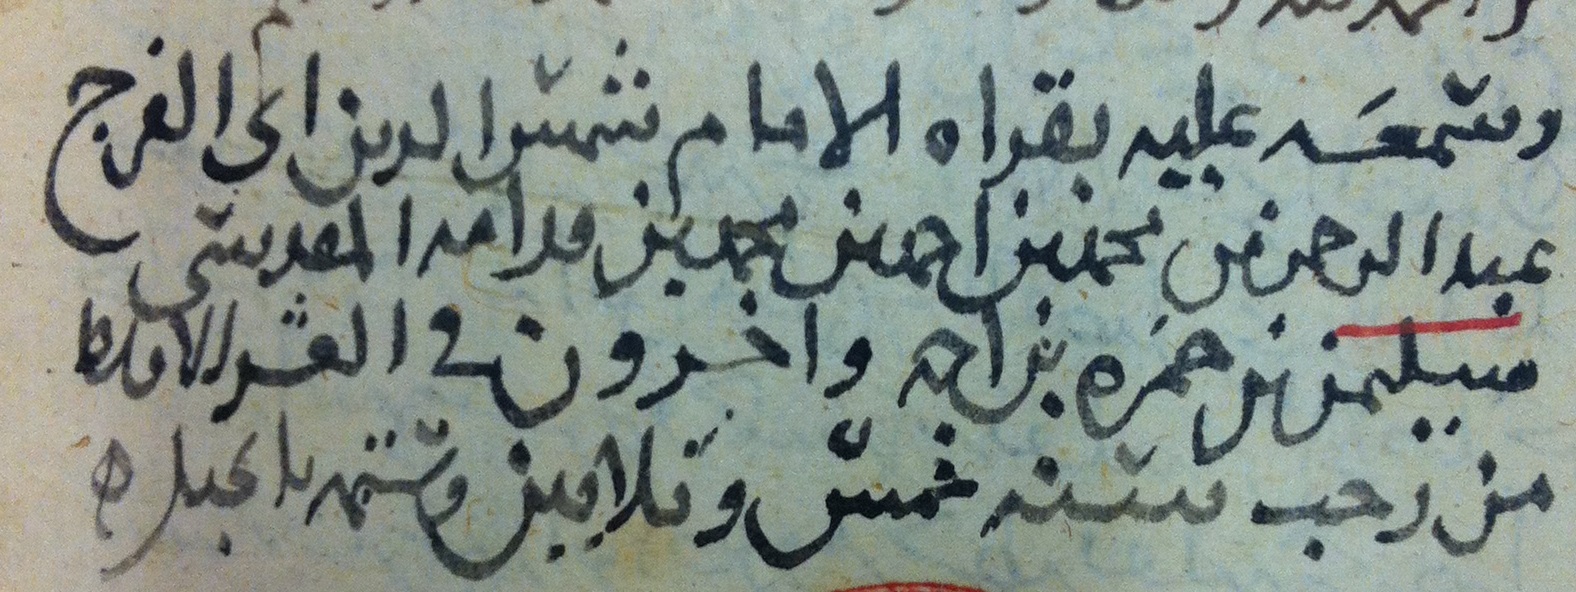 وسمعه عليه بقراه الامام شمس الدين ابي الفرج
عبد الرحمن بن محمد بن احمد بن محمد بن قدامه المقدسي
سليمن بن حمزه بن احمد واخرون في العشر الاوسط
من رجب سنه خمس وثلاثين وستمه بالجبل